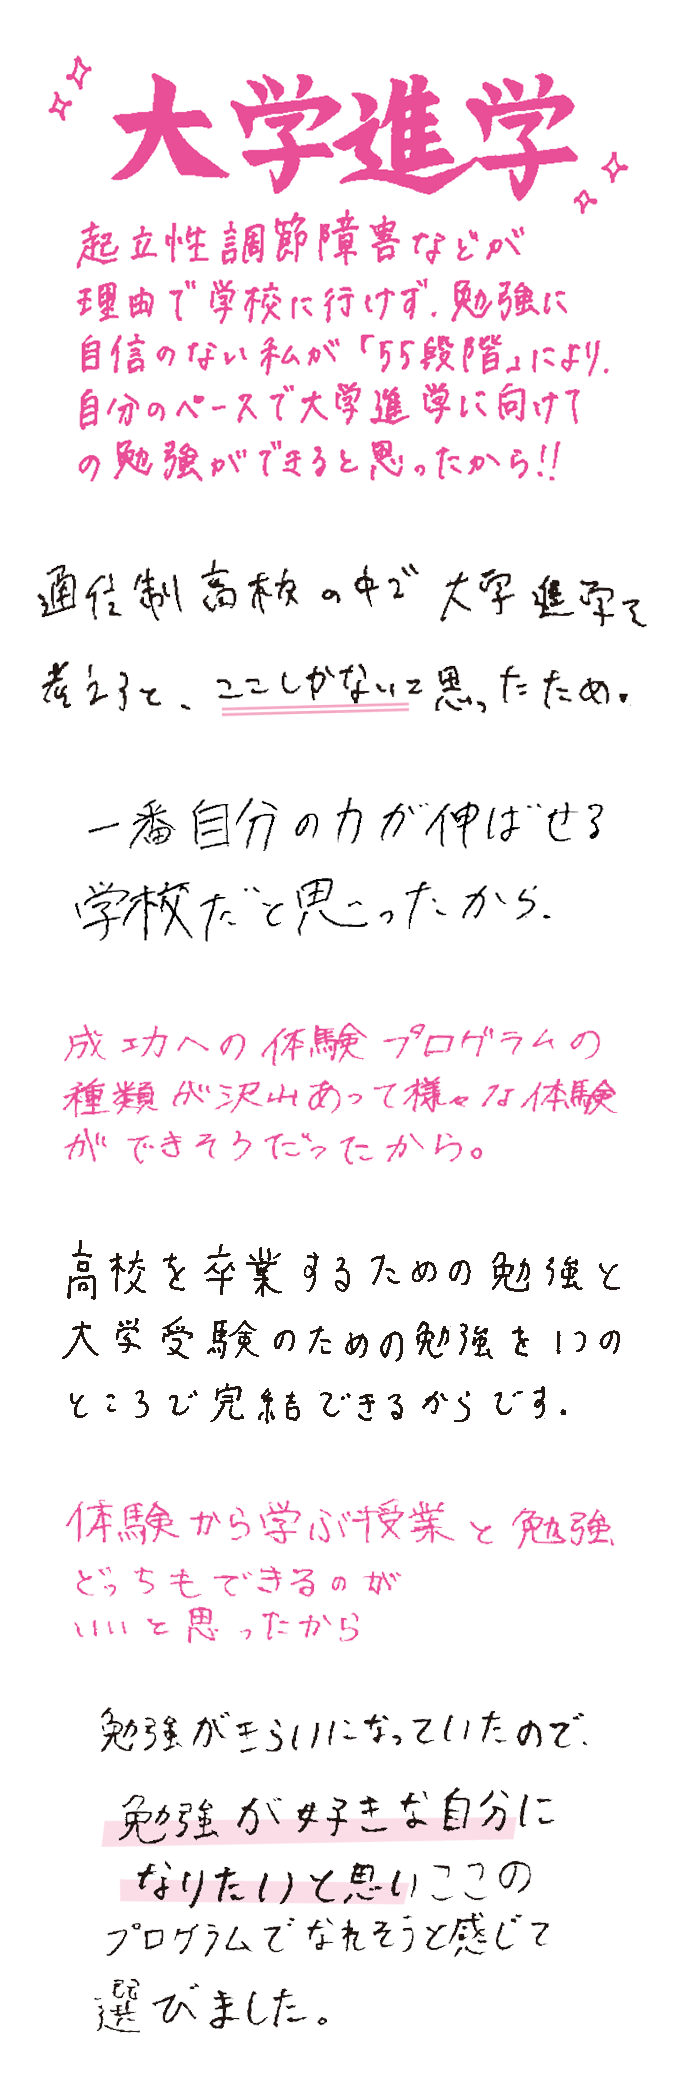 大学進学
起立性調節障害などが
理由で学校に行けず、勉強に
自信のない私が「55段階」により、
自分のペースで大学進学に向けて
の勉強ができると思ったから!!
通信制高校の中で大学進学を
考えると、ここしかないと思ったため。
一番自分の力が伸ばせる
学校だと思ったから、
成功への体験プログラムの
種類が沢山あって様々な体験
ができそうだったから。
高校を卒業するための勉強と
大学受験のための勉強を1つの
ところで完結できるからです.
体験から学ぶ授業と勉強
どっちもできるのが
いいと思ったから
勉強がきらいになっていたので、
勉強が好きな自分に
なりたいと思いここの
プログラムでなれそうと感じて
選びました。